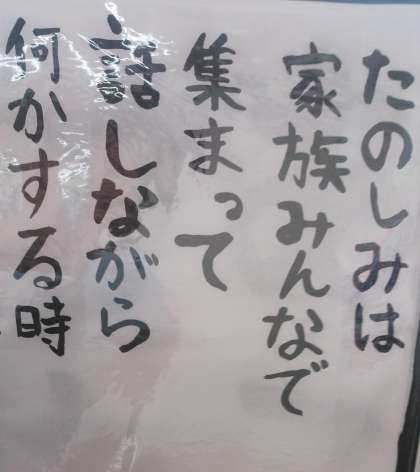 たのしみは
家族みんなで
集まって
話しながら
何かする時